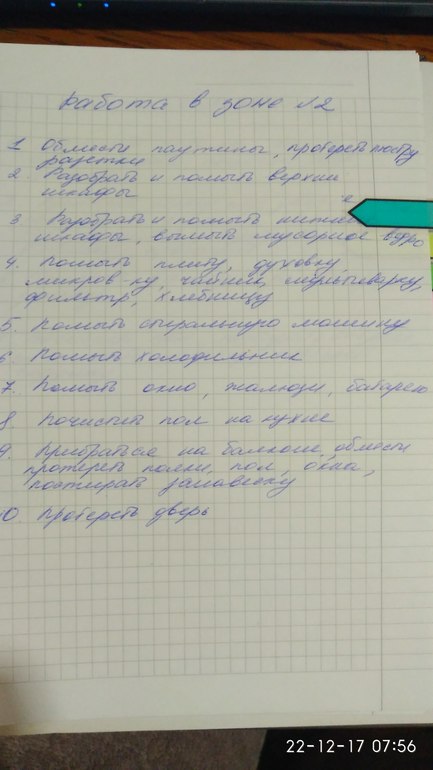 Работа в зоне №2
1 Обмести паутины, протереть люстру
разетки
2. Разобрать и помыть верхние
шкафы
3. Разобрать и помыть нижние
шкафы, вымыть мусорное ведро
4. Помыть плиту, духовку
микров-ку, чайник, мультиварку,
фильтр, хлебницу
5. Помыть стиральную машину
6 Помыть холодильник
7. Помыть окно, жалюзи, батарею
8. Почистить пол на кухне
9. Прибраться на балконе, обмести
протереть полки, пол, окна,
постирать занавеску
10. Протереть дверь
22-12-17 07:56